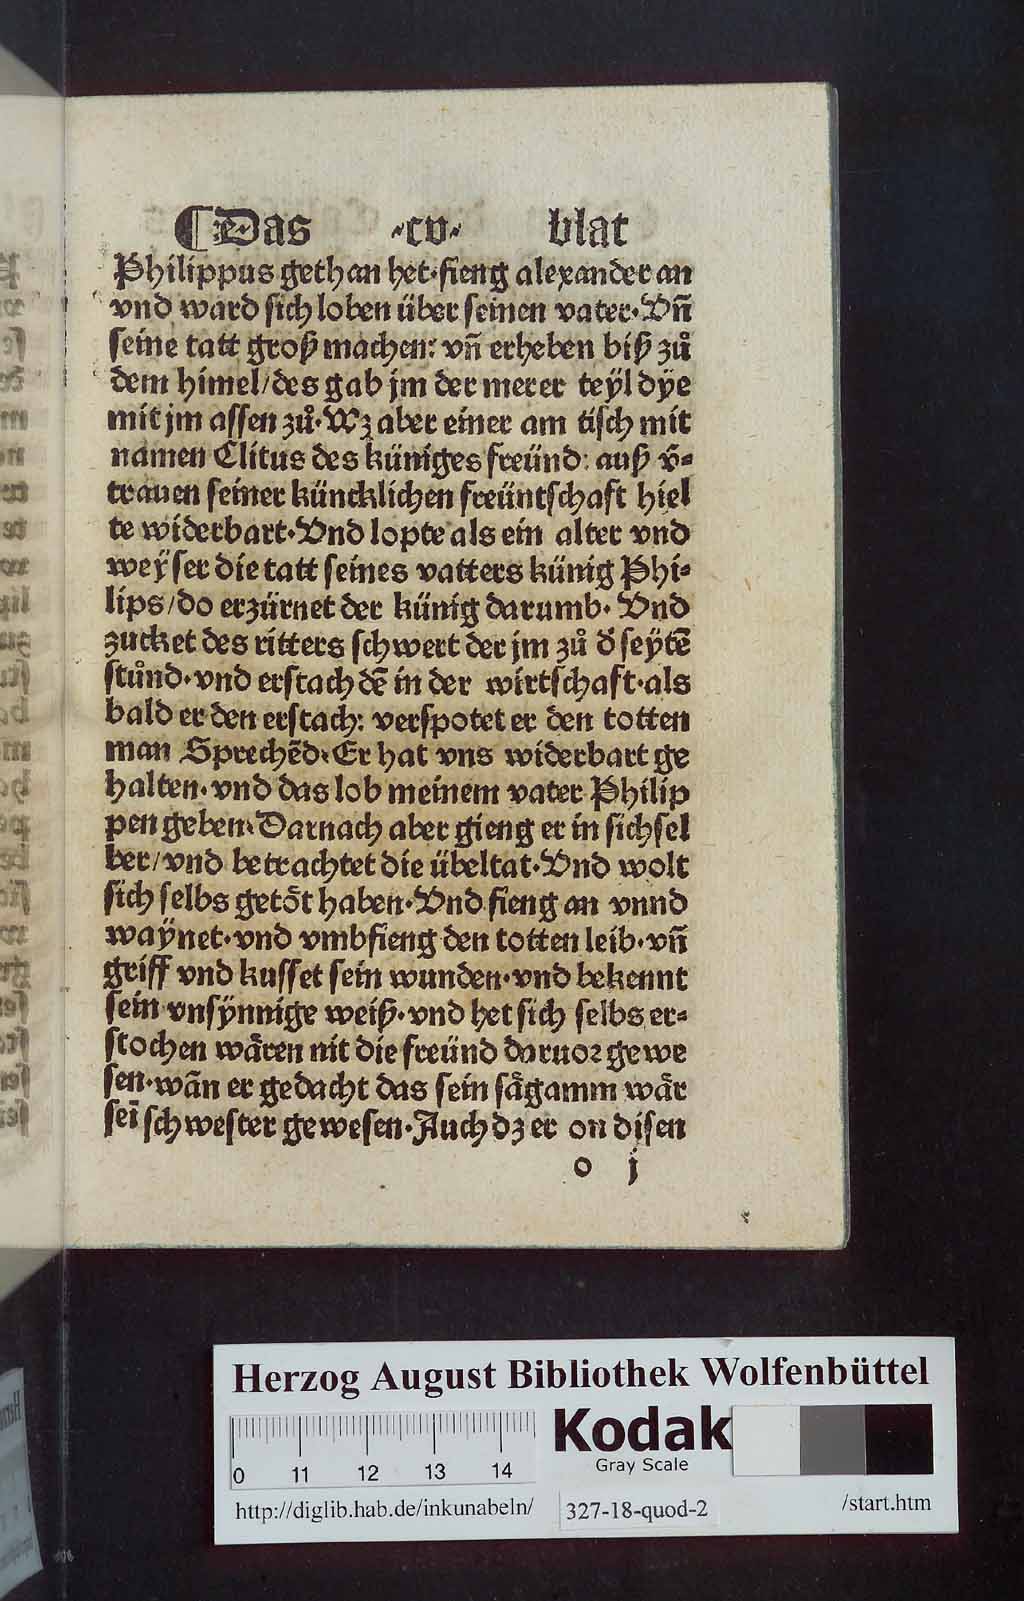 ⸿Das ·cv· blat
Philippus gethan het·fieng alexander an
vnd ward sich loben über seinen vater·Vñ
seine tatt groß machen: vñ erheben biß zů
dem himel/des gab jm der merer teÿl dÿe
mit jm assen zů·Wz aber einer am tisch mit
namen Clitus des küniges freünd: auß v̄⸗
trauen seiner küncklichen freüntschaft hiel
te widerbart·Vnd lopte als ein alter vnd
weÿser die tatt seines vatters künig Phi⸗
lips/do erzürnet der künig darumb· Vnd
zucket des ritters schwert der jm zů d̄ seÿtē
stůnd·vnd erstach dē in der wirtschaft·als
bald er den erstach: verspotet er den totten
man Sprechēd·Er hat vns widerbart ge
halten·vnd das lob meinem vater Philip
pen geben·Darnach aber gieng er in sichsel
ber/vnd betrachtet die übeltat·Vnd wolt
sich selbs getöt haben·Vnd fieng an vnnd
waÿnet·vnd vmbfieng den totten leib·vñ
griff vnd kusset sein wunden·vnd bekennt
sein vnsÿnnige weiß·vnd het sich selbs er⸗
stochen wären nit die freünd daruoꝛ gewe
sen·wān er gedacht das sein sägamm wär
sei̅ schwester gewesen·Auch dz er on disen
o j
Herzog August Bibliothek Wolfenbüttel
0 11 12 13 14
Kodak
Gray Scale
http://diglib.hab.de/inkunabeln/ 327-18-quod-2 /start.htm